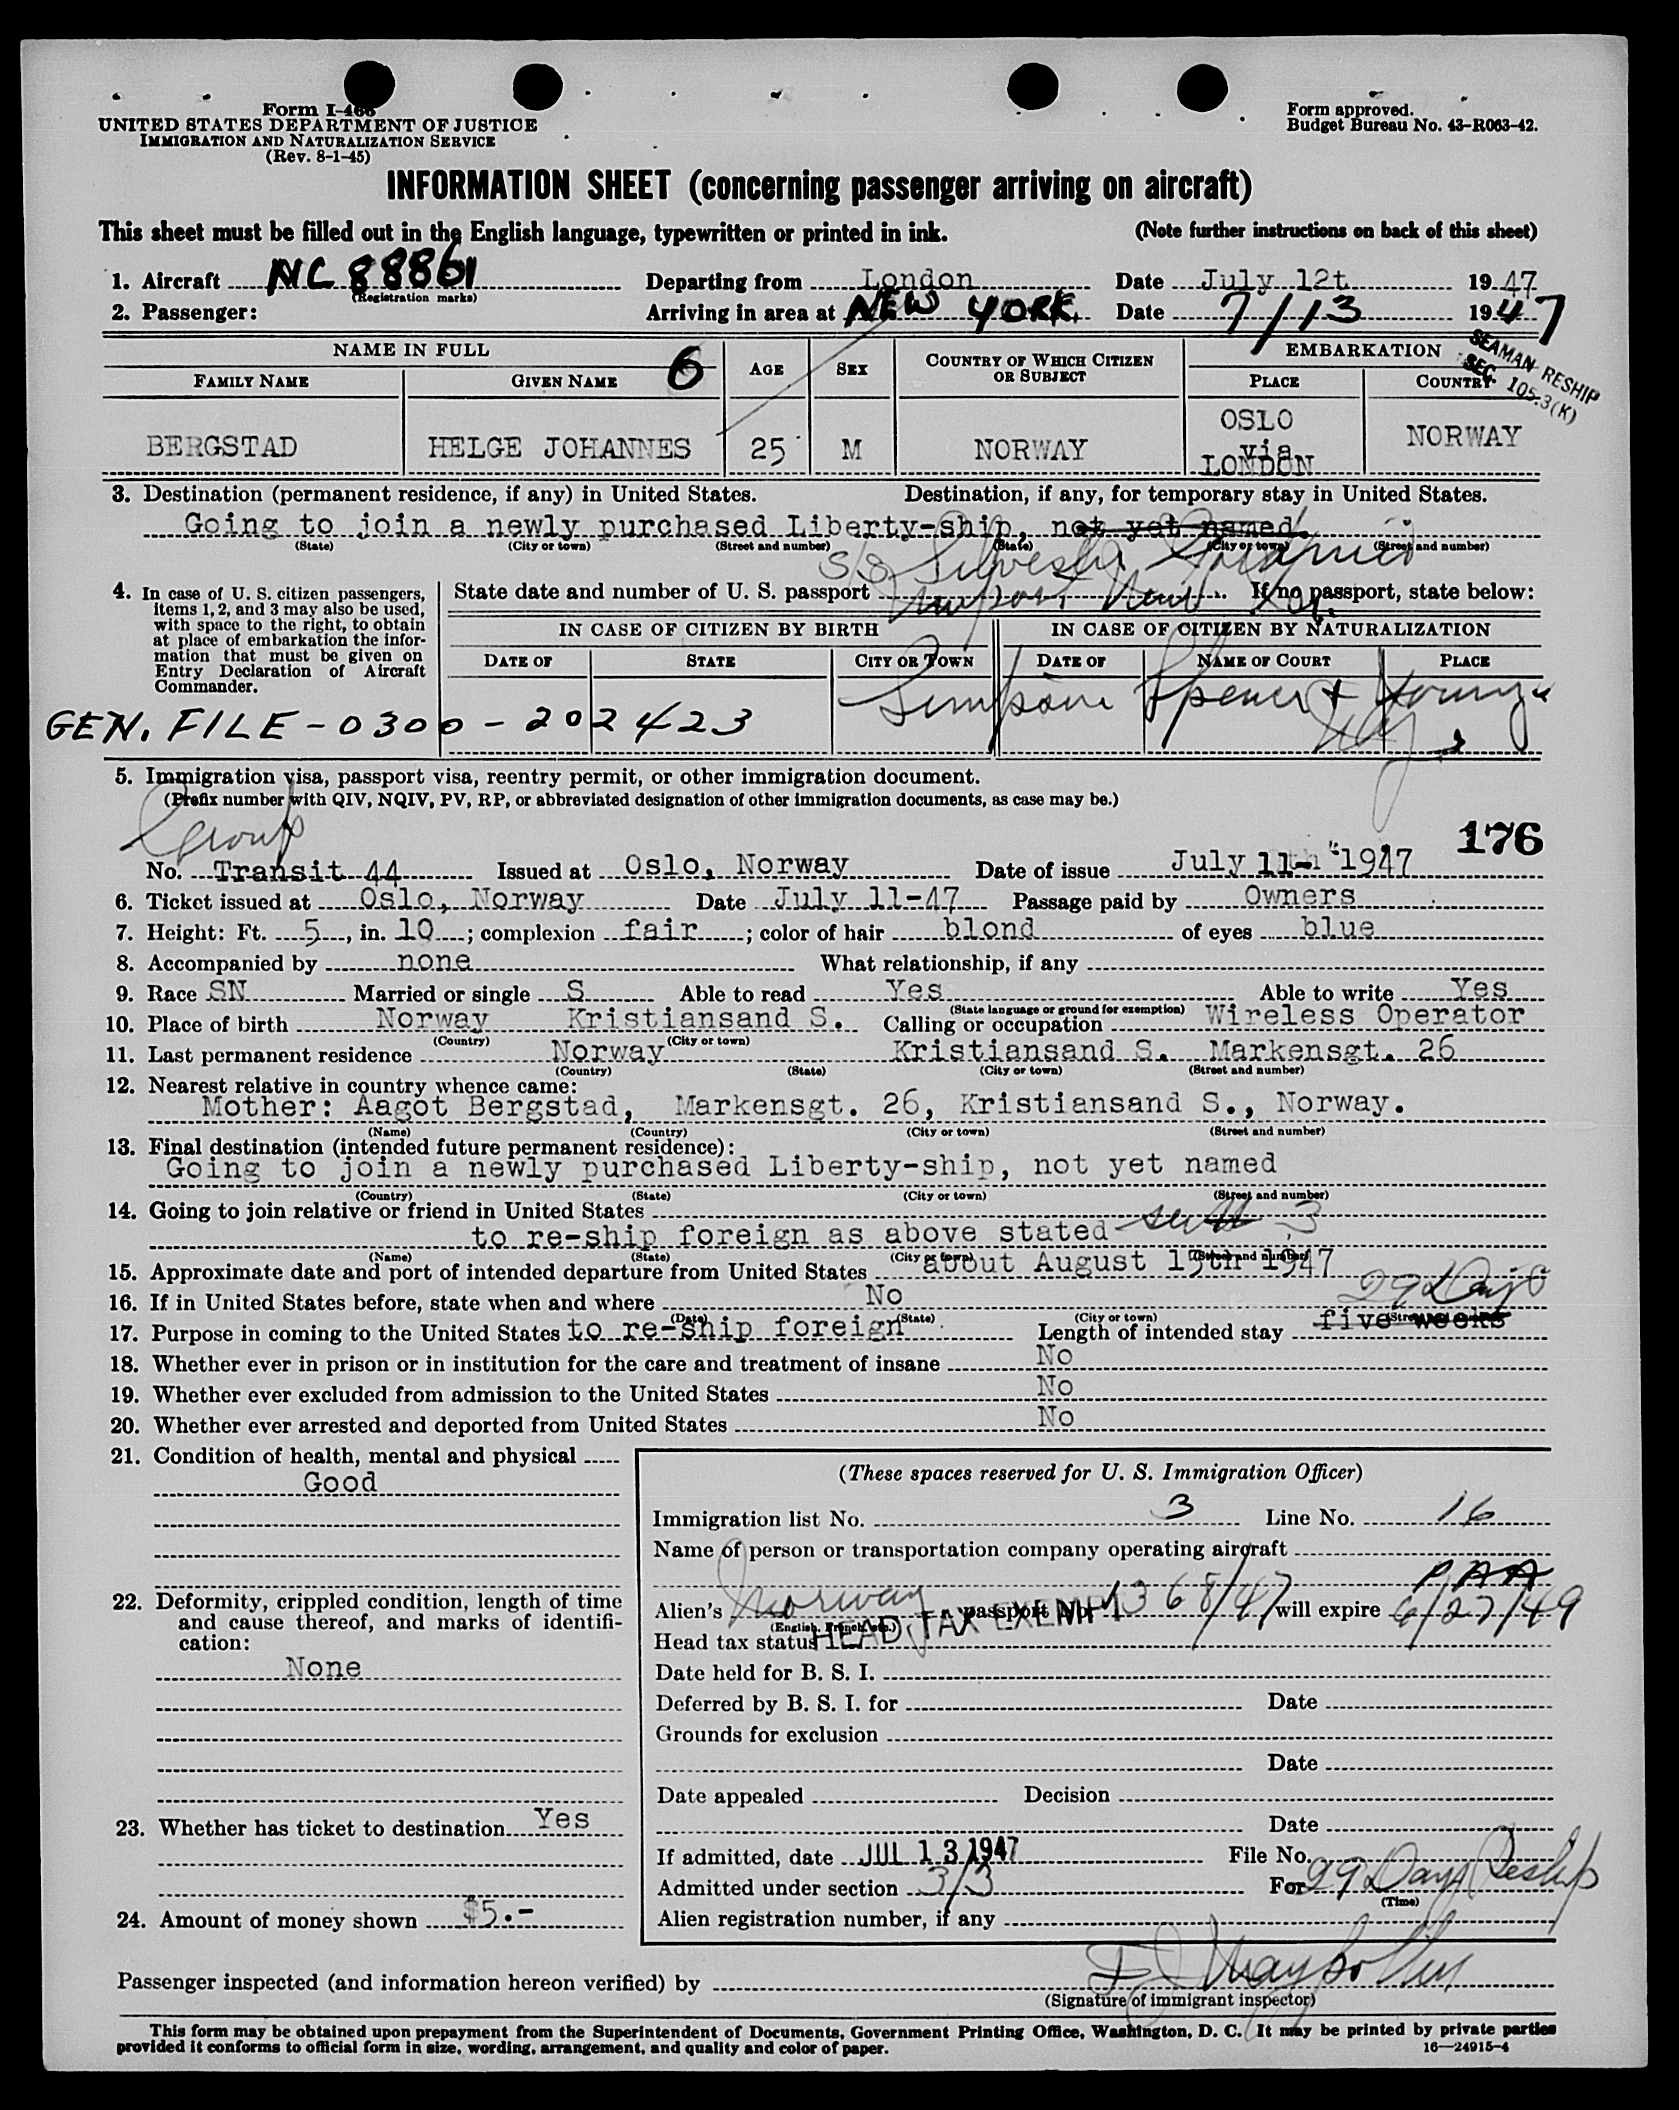 Form I-466
UNITED STATES DEPARTMENT OF JUSTICE
IMMIGRATION AND NATURALIZATION SERVICE
(Rev. 8-1-45)
Form approved.
Budget Bureau No. 43-R063-42.
INFORMATION SHEET (concerning passenger arriving on aircraft)
This sheet must be filled out in the English language, typewritten or printed in ink. (Note further instructions on back of this sheet)
1. Aircraft NC 88861 Departing from London Date July 12t 1947
(Registration marks)
2. Passenger: Arriving in area at NEW YORK Date 7/13 1947
SEAMAN RESHIP
SEC. 105.3(K)
NAME IN FULL 6 AGE SEX COUNTRY OF WHICH CITIZEN OR SUBJECT EMBARKATION
FAMILY NAME GIVEN NAME PLACE COUNTRY
BERGSTAD HELGE JOHANNES 25 M NORWAY OSLO via LONDON NORWAY
3. Destination (permanent residence, if any) in United States. Destination, if any, for temporary stay in United States.
Going to join a newly purchased Liberty-ship, not yet named
(State) (City or town) (Street and number) (State) (City or town) (Street and number)
S/S Silvester
4. In case of U. S. citizen passengers, items 1, 2, and 3 may also be used, with space to the right, to obtain at place of embarkation the information that must be given on Entry Declaration of Aircraft Commander.
State date and number of U. S. passport If no passport, state below:
IN CASE OF CITIZEN BY BIRTH IN CASE OF CITIZEN BY NATURALIZATION
DATE OF STATE CITY OR TOWN DATE OF NAME OF COURT PLACE
Simpson Spence & Young
NY
GEN. FILE - 0300 - 202423
5. Immigration visa, passport visa, reentry permit, or other immigration document.
(Prefix number with QIV, NQIV, PV, RP, or abbreviated designation of other immigration documents, as case may be.)
Group
176
No. Transit 44 Issued at Oslo, Norway Date of issue July 11- 1947
6. Ticket issued at Oslo, Norway Date July 11-47 Passage paid by Owners
7. Height: Ft. 5, in. 10; complexion fair; color of hair blond of eyes blue
8. Accompanied by none What relationship, if any
9. Race SN Married or single S Able to read Yes Able to write Yes
(State language or ground for exemption)
10. Place of birth Norway Kristiansand S. Calling or occupation Wireless Operator
(Country) (City or town)
11. Last permanent residence Norway Kristiansand S. Markensgt. 26
(Country) (State) (City or town) (Street and number)
12. Nearest relative in country whence came:
Mother: Aagot Bergstad, Markensgt. 26, Kristiansand S., Norway.
(Name) (Country) (City or town) (Street and number)
13. Final destination (intended future permanent residence):
Going to join a newly purchased Liberty-ship, not yet named
(Country) (State) (City or town) (Street and number)
14. Going to join relative or friend in United States
to re-ship foreign as above stated 3
(Name) (State) (City or town) (Street and number)
15. Approximate date and port of intended departure from United States about August 15th 1947
16. If in United States before, state when and where No 29 Days
(Date) (State) (City or town) (Street
17. Purpose in coming to the United States to re-ship foreign Length of intended stay five weeks
18. Whether ever in prison or in institution for the care and treatment of insane No
19. Whether ever excluded from admission to the United States No
20. Whether ever arrested and deported from United States No
21. Condition of health, mental and physical
Good
22. Deformity, crippled condition, length of time and cause thereof, and marks of identification:
None
23. Whether has ticket to destination Yes
24. Amount of money shown $5.-
(These spaces reserved for U. S. Immigration Officer)
Immigration list No. 3 Line No. 16
Name of person or transportation company operating aircraft
PAA
Alien's Norway passport No. 1368/47 will expire 6/27/49
(English, French, etc.)
Head tax status HEAD TAX EXEMPT
Date held for B. S. I.
Deferred by B. S. I. for Date
Grounds for exclusion
Date
Date appealed Decision
Date
If admitted, date JUL 13 1947 File No.
Admitted under section 3/3 For 29 Days Reship
(Time)
Alien registration number, if any
Passenger inspected (and information hereon verified) by
(Signature of immigrant inspector)
This form may be obtained upon prepayment from the Superintendent of Documents, Government Printing Office, Washington, D. C. It may be printed by private parties
provided it conforms to official form in size, wording, arrangement, and quality and color of paper. 16—24915-4